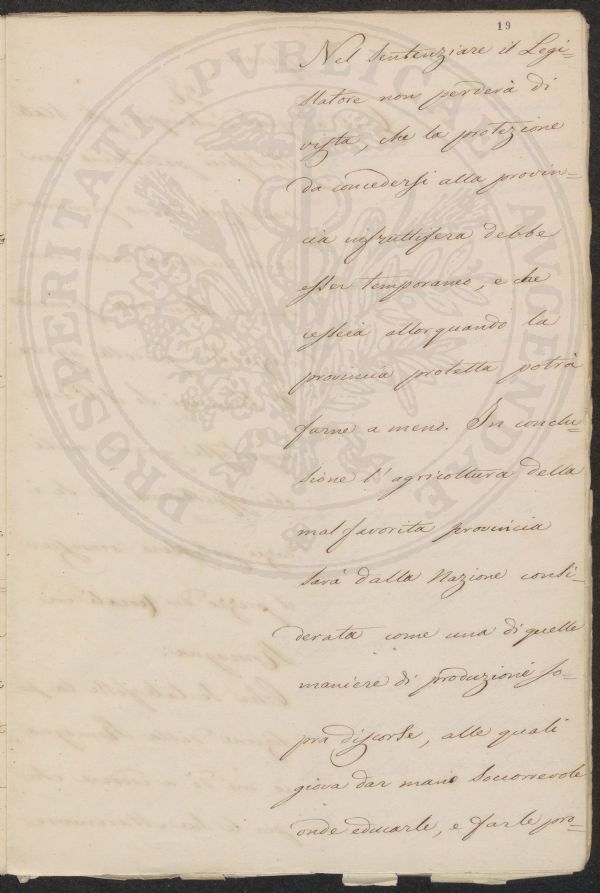 19
Nel sentenziare il Legi=
slatore non perderà di
vista, che la protezione
da concedersi alla provin=
cia infruttifera debbe
esser temporanea, e che
cesserà allorquando la
provincia protetta potrà
farne a meno. In conclu=
sione l'agricoltura della
mal favorita provincia
sarà dalla Nazione consi=
derata come una di quelle
maniere di produzione so=
pra discorse, alle quali
giova dar mano soccorrevole
onde educarle, e farle pro=
PROSPERITATI PVBLICAE AVGENDAE